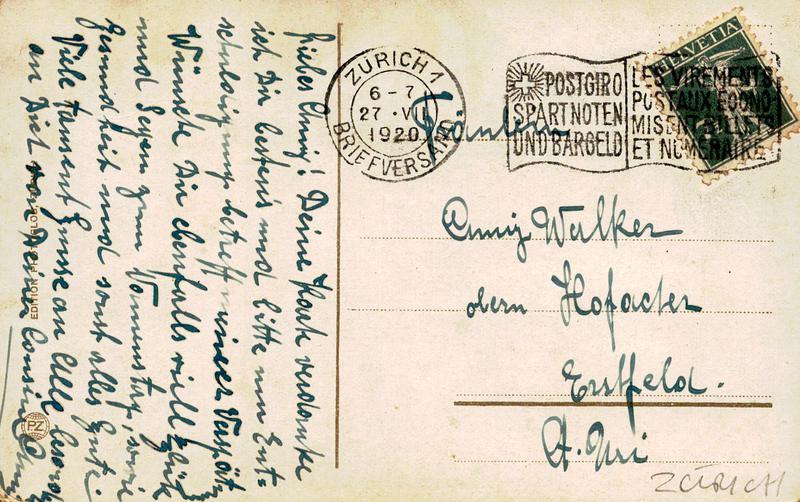 Liebes Anny! Deine Karte verdanke
ich Dir bestens und bitte um Ent-
schuldigung betreff meiner Verspätg.
Wünsche Dir ebenfalls viel Glück
und Segen zum Namenstag, sowie
Gesundheit und sonst alles Gute.
Viele tausend Grüsse an Alle besond.
an Dich von Deiner Cousine
EDITION
PZ
ZÜRICH 1
6-7
27. VII
1920
BRIEFVERSAND
POSTGIRO
SPART NOTEN
UND BARGELD
LES VIREMENTS
POSTAUX ÉCONO
MISENT BILLETS
ET NUMÉRAIRE
HELVETIA
Fräulein
Anny Walker
obern Hofacker
Erstfeld.
Kt. Uri
ZÜRICH